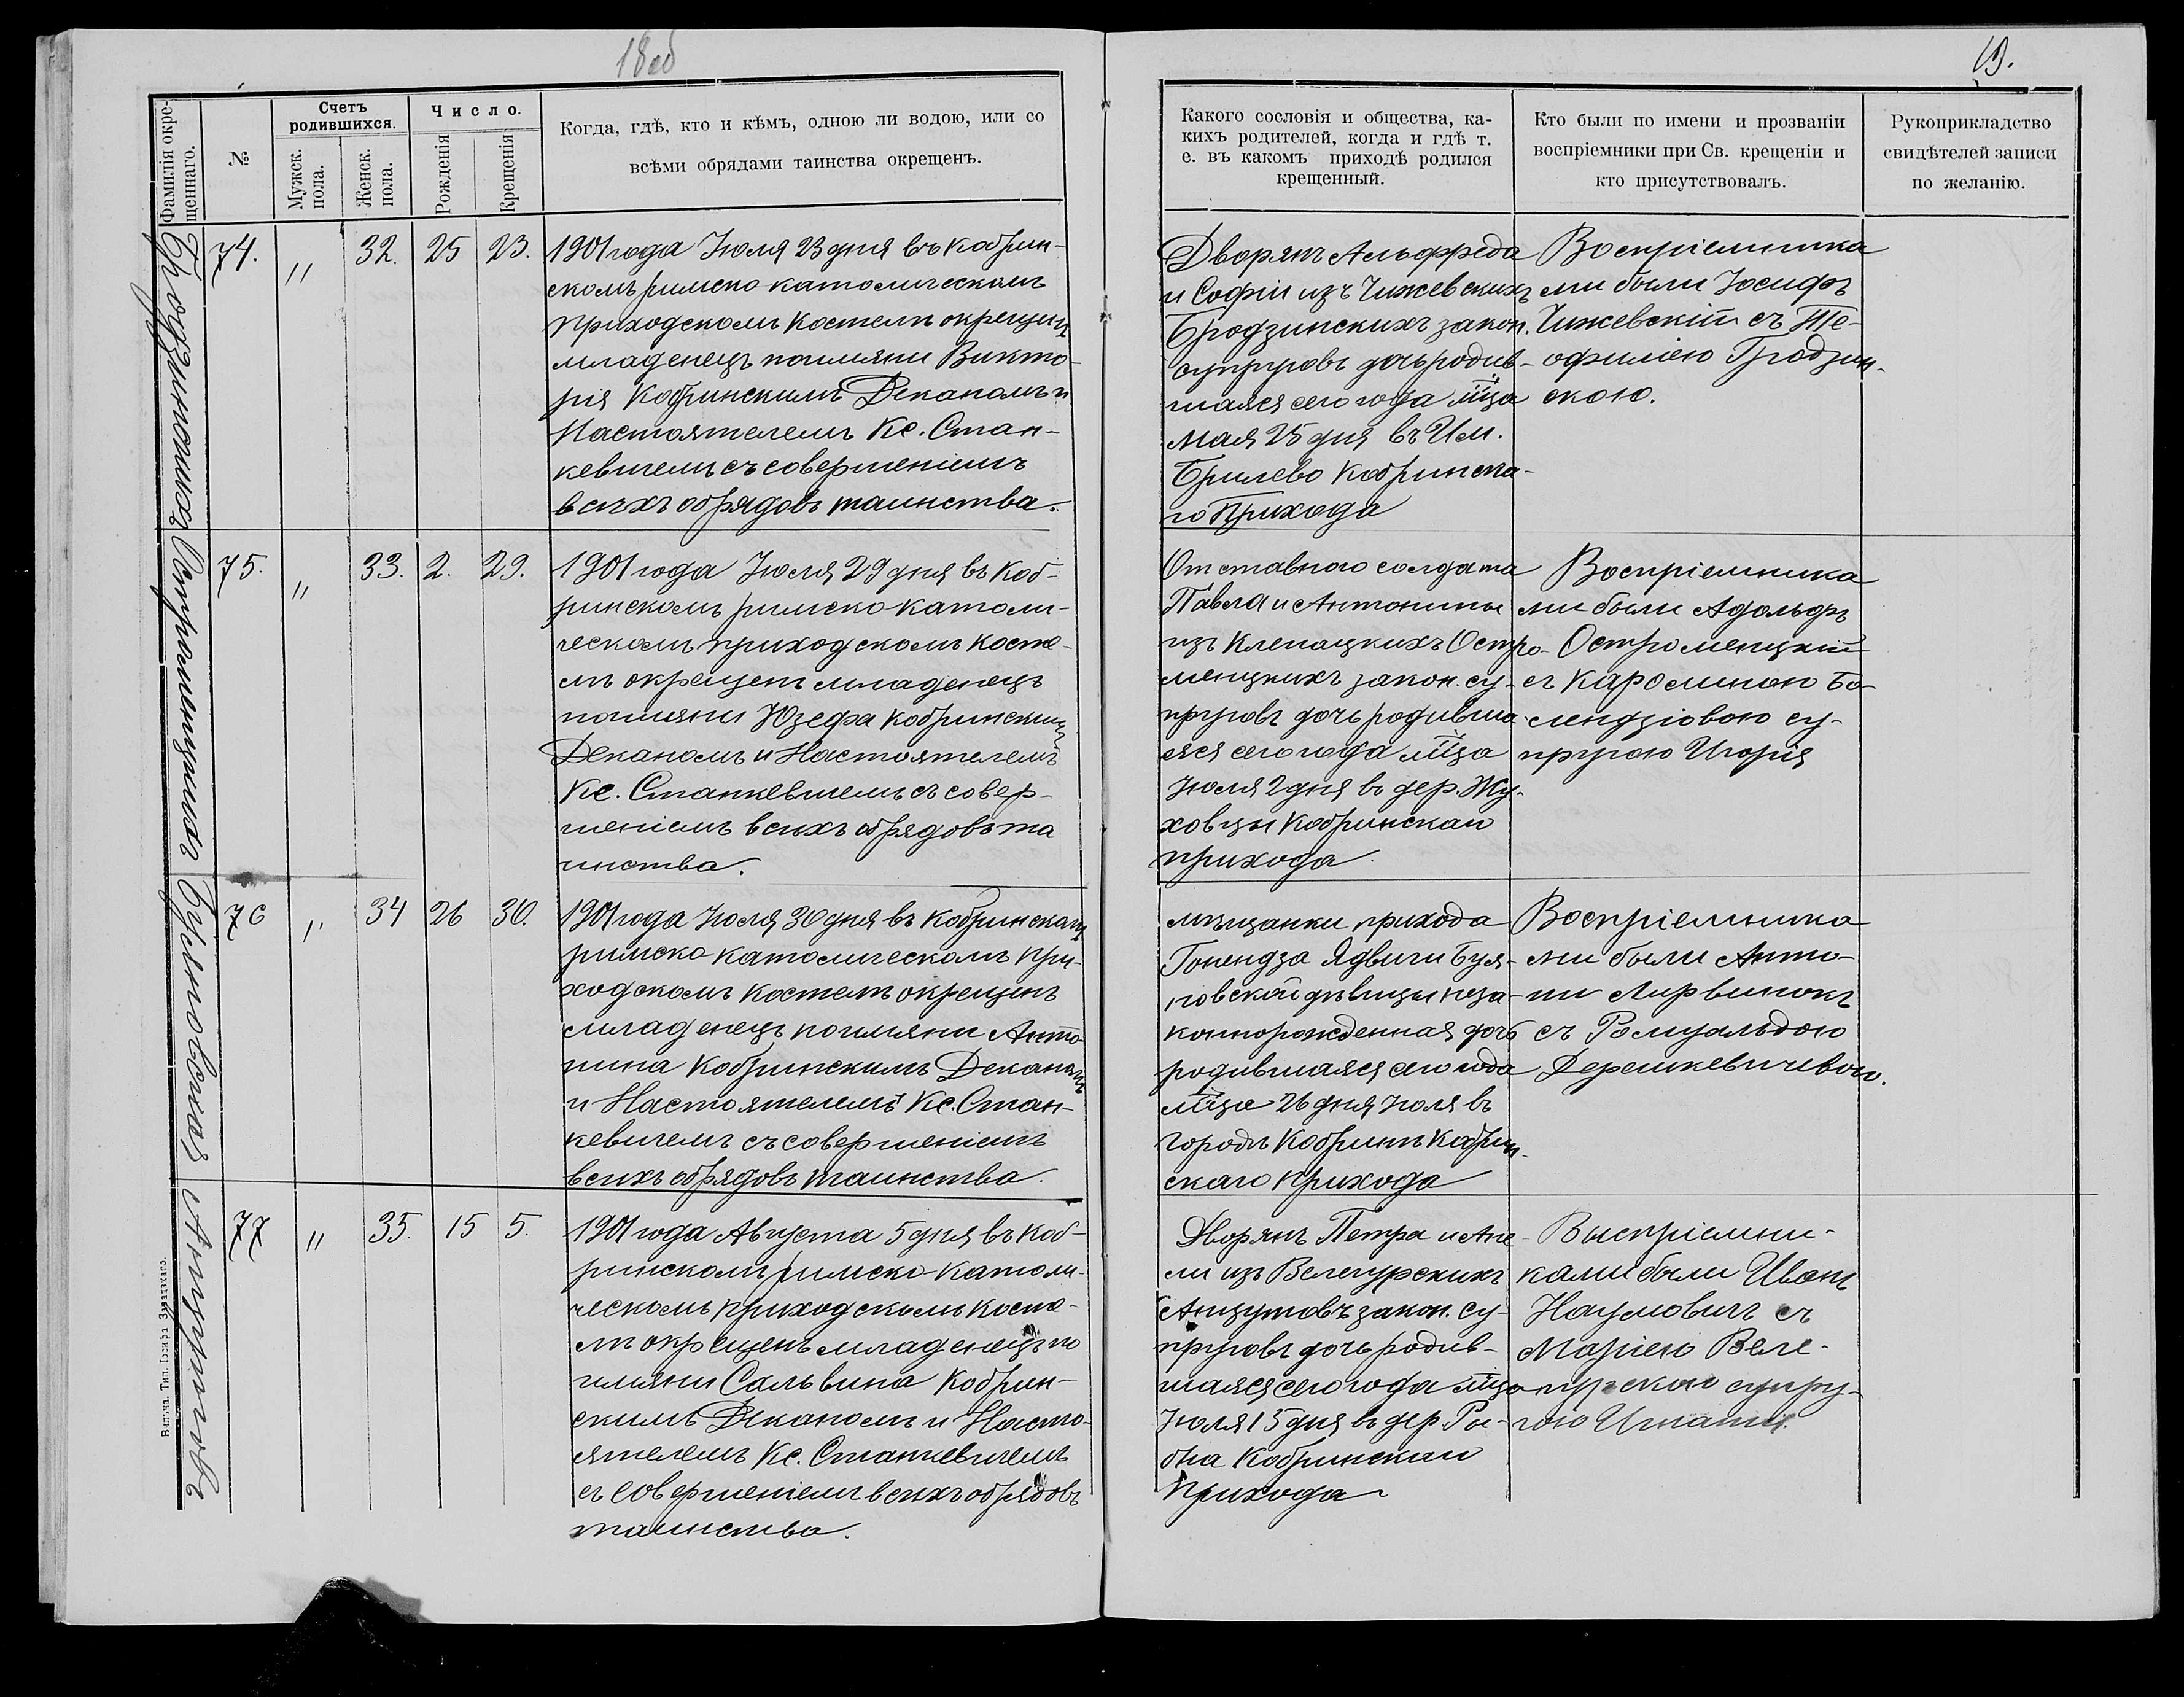 18об
19.
Фамилія окре-
щеннаго.
№
Счетъ
родившихся.
Мужск.
пола.
Женск.
пола.
Число.
Рожденія
Крещенія
Когда, гдѣ, кто и кѣмъ, одною ли водою, или со
всѣми обрядами таинства окрещенъ.
Какого сословія и общества, ка-
кихъ родителей, когда и гдѣ т.
е. въ какомъ приходѣ родился
крещенный.
Кто были по имени и прозванію
воспріемники при Св. крещеніи и
кто присутствовалъ.
Рукоприкладство
свидѣтелей записи
по желанію.
Бродзинскихъ
74. " 32. 25 23.
1901 года Іюля 23 дня въ Кобрин-
скомъ римско католическомъ
приходскомъ Костелѣ окрещенъ
младенецъ поимяни Викто-
рія Кобринскимъ Деканомъ и
Настоятелемъ Кс. Стан-
кевичемъ съ совершеніемъ
всѣхъ обрядовъ таинства.
Дворянъ Альфреда
и Софіи изъ Чижевскихъ
Бродзинскихъ закон.
супруговъ дочь родив-
шаяся сего года мѣца
мая 25 дня въ Им.
Брилево Кобринска-
го Прихода
Воспріемника
ми были Іосифъ
Чижевскій съ Те-
офилією Гродзин-
скою.
Остроменцкихъ
75. " 33. 2. 29.
1901 года Іюля 29 дня въ Коб-
ринскомъ римско-католи-
ческомъ приходскомъ косте-
лѣ окрещенъ младенецъ
поимяни Юзефа Кобринскимъ
Деканомъ и Настоятелемъ
Кс. Станкевичемъ съ совер-
шеніемъ всѣхъ обрядовъ та
инства.
Отставного солдата
Павла и Антонины
изъ Клепацкихъ Остро-
менцкихъ закон. су-
пруговъ дочь родивша
яся сего года мѣца
Іюля 2 дня въ дер. Жу-
ховцы Кобринскаго
прихода.
Воспріемника
ми были Адольфъ
Остроменцкій
съ Каролиною Бо-
лендзіовою су-
пругою Игорія
Буяновская
76 " 34 26 30.
1901 года Іюля 30 дня въ Кобринскомъ
римско католическомъ при-
ходскомъ костелѣ окрещенъ
младенецъ поимяни Анто-
нина Кобринскимъ Деканомъ
и Настоятелемъ Кс. Стан-
кевичемъ съ совершеніемъ
всѣхъ обрядовъ таинства.
мѣщанки прихода
Гонендза Ядвиги Буя-
новской дѣвицы неза-
коннорожденная дочь
родившаяся сего года
мѣца 26 дня Іюля въ
городѣ Кобринѣ Кобрин-
скаго прихода
Воспріемника
ми были Анто-
ни Лирвинокъ
съ Ромуальдою
Дерешкевичевою.
Анцутовъ
77 " 35. 15 5.
1901 года Августа 5 дня въ Коб-
ринскомъ римско-католи-
ческомъ приходскомъ косте-
лѣ окрещенъ младенецъ по
имяни Сальвина Кобрин-
скимъ Деканомъ и Насто-
ятелемъ Кс. Станкевичемъ
съ совершеніемъ всѣхъ обрядовъ
таинства.
Дворянъ Петра и Ане-
ли изъ Велегурскихъ
Анцутовъ закон. су-
пруговъ дочь родив-
шаяся сего года мѣца
Іюля 15 дня въ дер. Ры-
бна Кобринскаго
Прихода
Выспріемни-
ками были Иванъ
Наумовичъ съ
Марією Веле-
гурскою супру-
гою Игнатія.